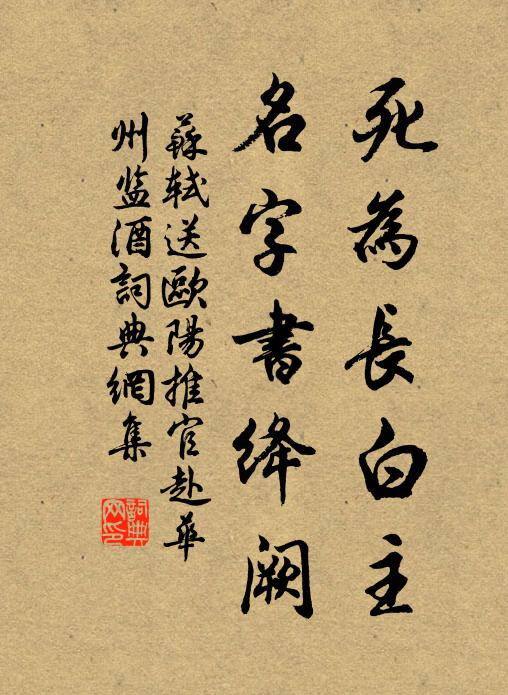 死為長白主
名字書絳闕
蘇軾送歐陽推官赴華
州监酒詞典網集
詞典
网印